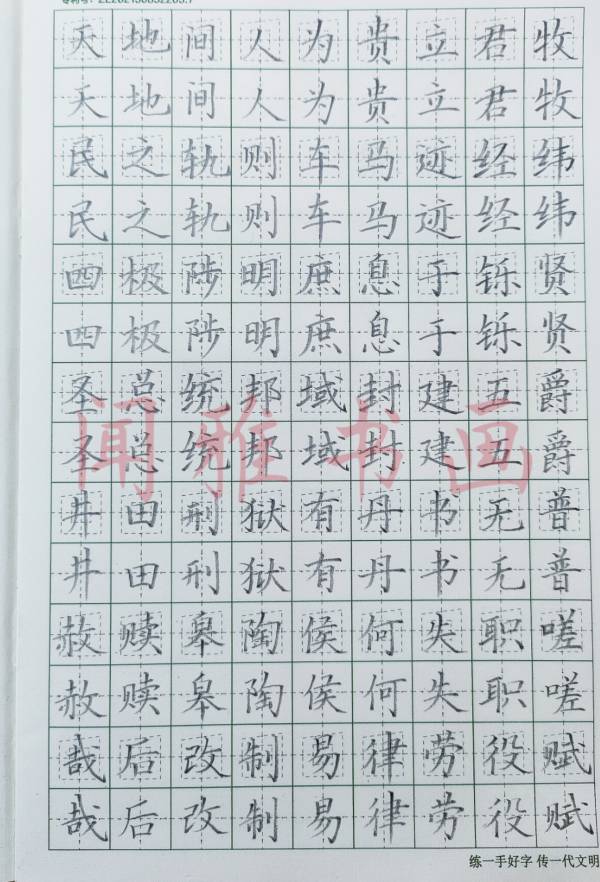 天地间人为贵立君牧
天地间人为贵立君牧
民之轨则车马迹经纬
民之轨则车马迹经纬
四极陟明庶息于铄贤
四极陟明庶息于铄贤
圣总统邦域封建五爵
圣总统邦域封建五爵
闻雅书画
井田刑狱有丹书无普
井田刑狱有丹书无普
赦赎皋陶侯何失职嗟
赦赎皋陶侯何失职嗟
哉后改制易律劳役赋
哉后改制易律劳役赋
练一手好字 传一代文明